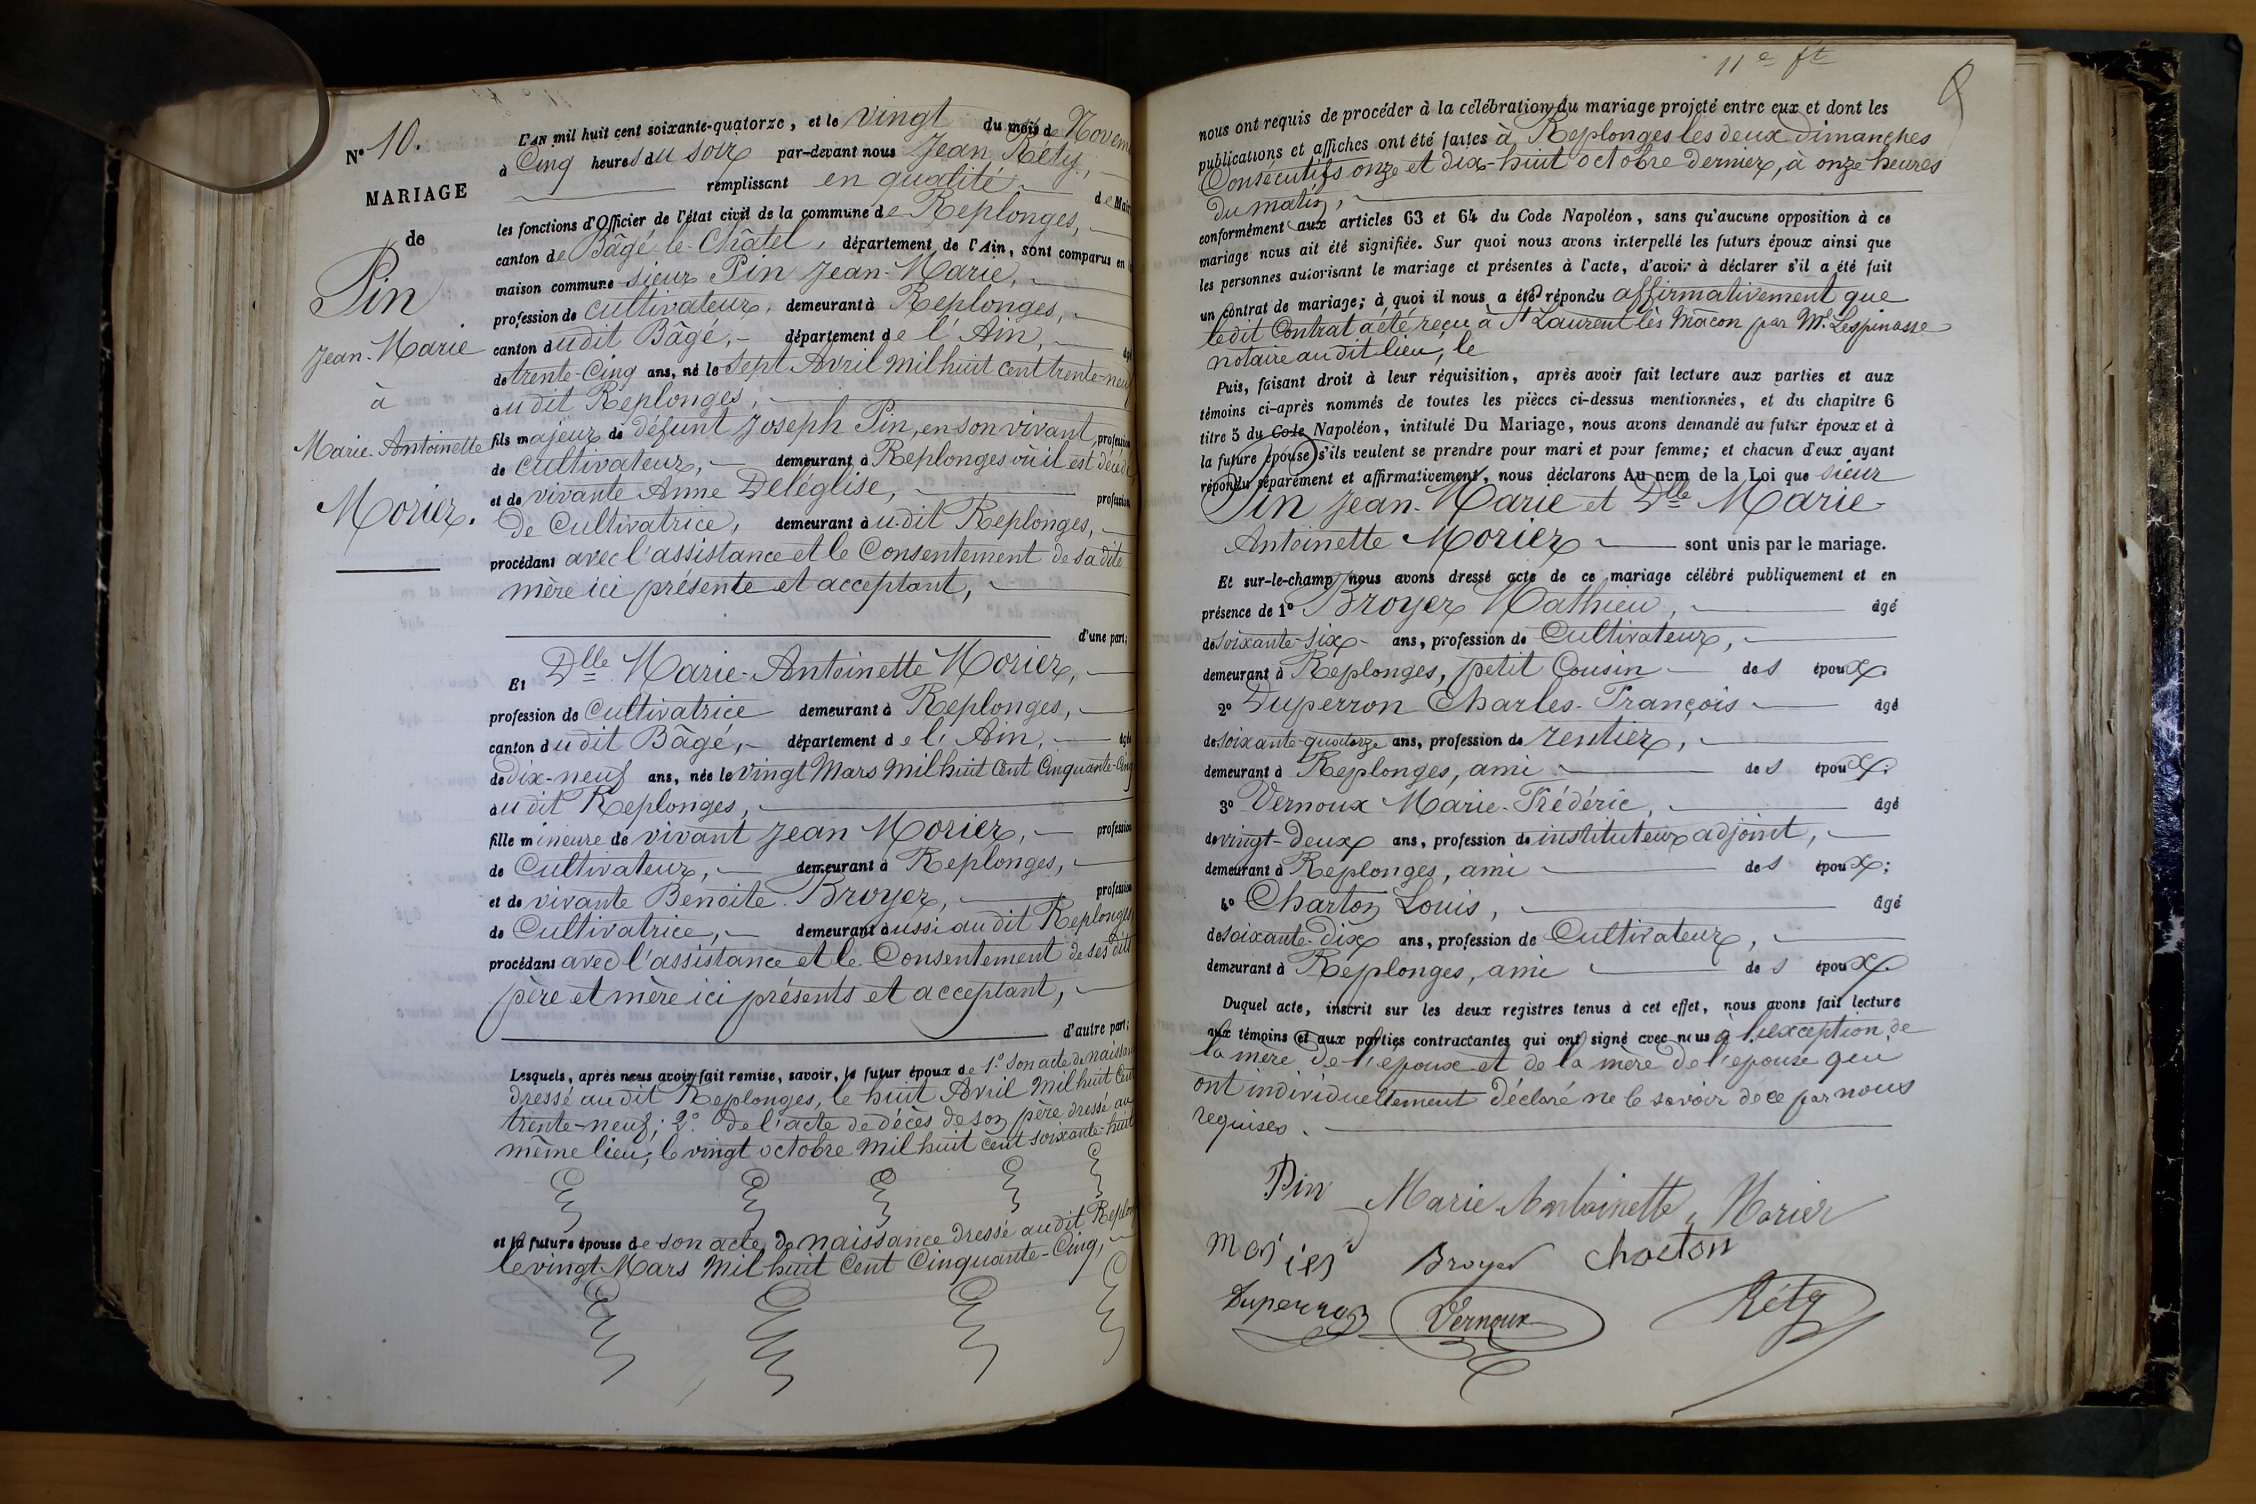 N° 10.
MARIAGE
de
Pin
Jean-Marie
à
Marie-Antoinette
Morier.
L'AN mil huit cent soixante-quatorze, et le vingt du mois de Novem
à Cinq heures du soir par-devant nous Jean Réty,
remplissant en qualité de Mair
les fonctions d'Officier de l'état civil de la commune de Replonges,
canton de Bâgé-le-Châtel, département de l'Ain, sont comparus en
maison commune sieur Pin Jean-Marie,
profession de cultivateur, demeurant à Replonges,
canton dudit Bâgé, département de l'Ain, âgé
de trente-Cinq ans, né le sept Avril mil huit cent trente-neuf
audit Replonges,
fils majeur de défunt Joseph Pin, en son vivant, profession
de cultivateur, demeurant à Replonges où il est décédé,
et de vivante Anne Deléglise, profession
de Cultivatrice, demeurant audit Replonges,
procédant avec l'assistance et le Consentement de sa dite
mère ici présente et acceptant,
d'une part;
Et Dlle Marie-Antoinette Morier,
profession de Cultivatrice demeurant à Replonges,
canton dudit Bâgé, département de l'Ain, âgée
de dix-neuf ans, née le vingt Mars mil huit Cent Cinquante-Cinq
audit Replonges,
fille mineure de vivant Jean Morier, profession
de Cultivateur, demeurant à Replonges,
et de vivante Benoite Broyer, profession
de Cultivatrice, demeurant aussi audit Replonges
procédant avec l'assistance et le Consentement de ses dits
père et mère ici présents et acceptant,
d'autre part;
Lesquels, après nous avoir fait remise, savoir, le futur époux de 1° son acte de naissance
dressé audit Replonges, le huit Avril mil huit Cent
trente-neuf; 2° de l'acte de décès de son père dressé au
même lieu, le vingt octobre mil huit cent soixante-huit
et la future épouse de son acte de naissance dressé audit Replon
le vingt Mars mil huit Cent Cinquante-Cinq,
11e ft
nous ont requis de procéder à la célébration du mariage projeté entre eux et dont les
publications et affiches ont été faites à Replonges les deux dimanches
Consécutifs onze et dix-huit octobre dernier, à onze heures
du matin,
conformément aux articles 63 et 64 du Code Napoléon, sans qu'aucune opposition à ce
mariage nous ait été signifiée. Sur quoi nous avons interpellé les futurs époux ainsi que
les personnes autorisant le mariage et présentes à l'acte, d'avoir à déclarer s'il a été fait
un contrat de mariage; à quoi il nous a été répondu affirmativement que
ledit Contrat a été reçu à St Laurent lès Mâcon par Me Lespinasse
notaire audit lieu, le
Puis, faisant droit à leur réquisition, après avoir fait lecture aux parties et aux
témoins ci-après nommés de toutes les pièces ci-dessus mentionnées, et du chapitre 6
titre 5 du Code Napoléon, intitulé Du Mariage, nous avons demandé au futur époux et à
la future épouse s'ils veulent se prendre pour mari et pour femme; et chacun d'eux ayant
répondu séparément et affirmativement, nous déclarons Au nom de la Loi que sieur
Pin Jean-Marie et Dlle Marie-
Antoinette Morier sont unis par le mariage.
Et sur-le-champ nous avons dressé acte de ce mariage célébré publiquement et en
présence de 1° Broyer Mathieu, âgé
de soixante-six ans, profession de Cultivateur,
demeurant à Replonges, petit Cousin des époux.
2° Duperron Charles-François âgé
de soixante-quatorze ans, profession de rentier,
demeurant à Replonges, ami des époux.
3° Vernoux Marie-Frédéric, âgé
de vingt-deux ans, profession de instituteur adjoint,
demeurant à Replonges, ami des époux;
4° Charton Louis, âgé
de soixante-dix ans, profession de Cultivateur,
demeurant à Replonges, ami des époux.
Duquel acte, inscrit sur les deux registres tenus à cet effet, nous avons fait lecture
aux témoins et aux parties contractantes qui ont signé avec nous à l'exception de
la mère de l'époux et de la mère de l'épouse qui
ont individuellement déclaré ne le savoir de ce par nous
requises.
Pin Marie Antoinette Morier
morier Broyer Charton
Duperron Vernoux Réty